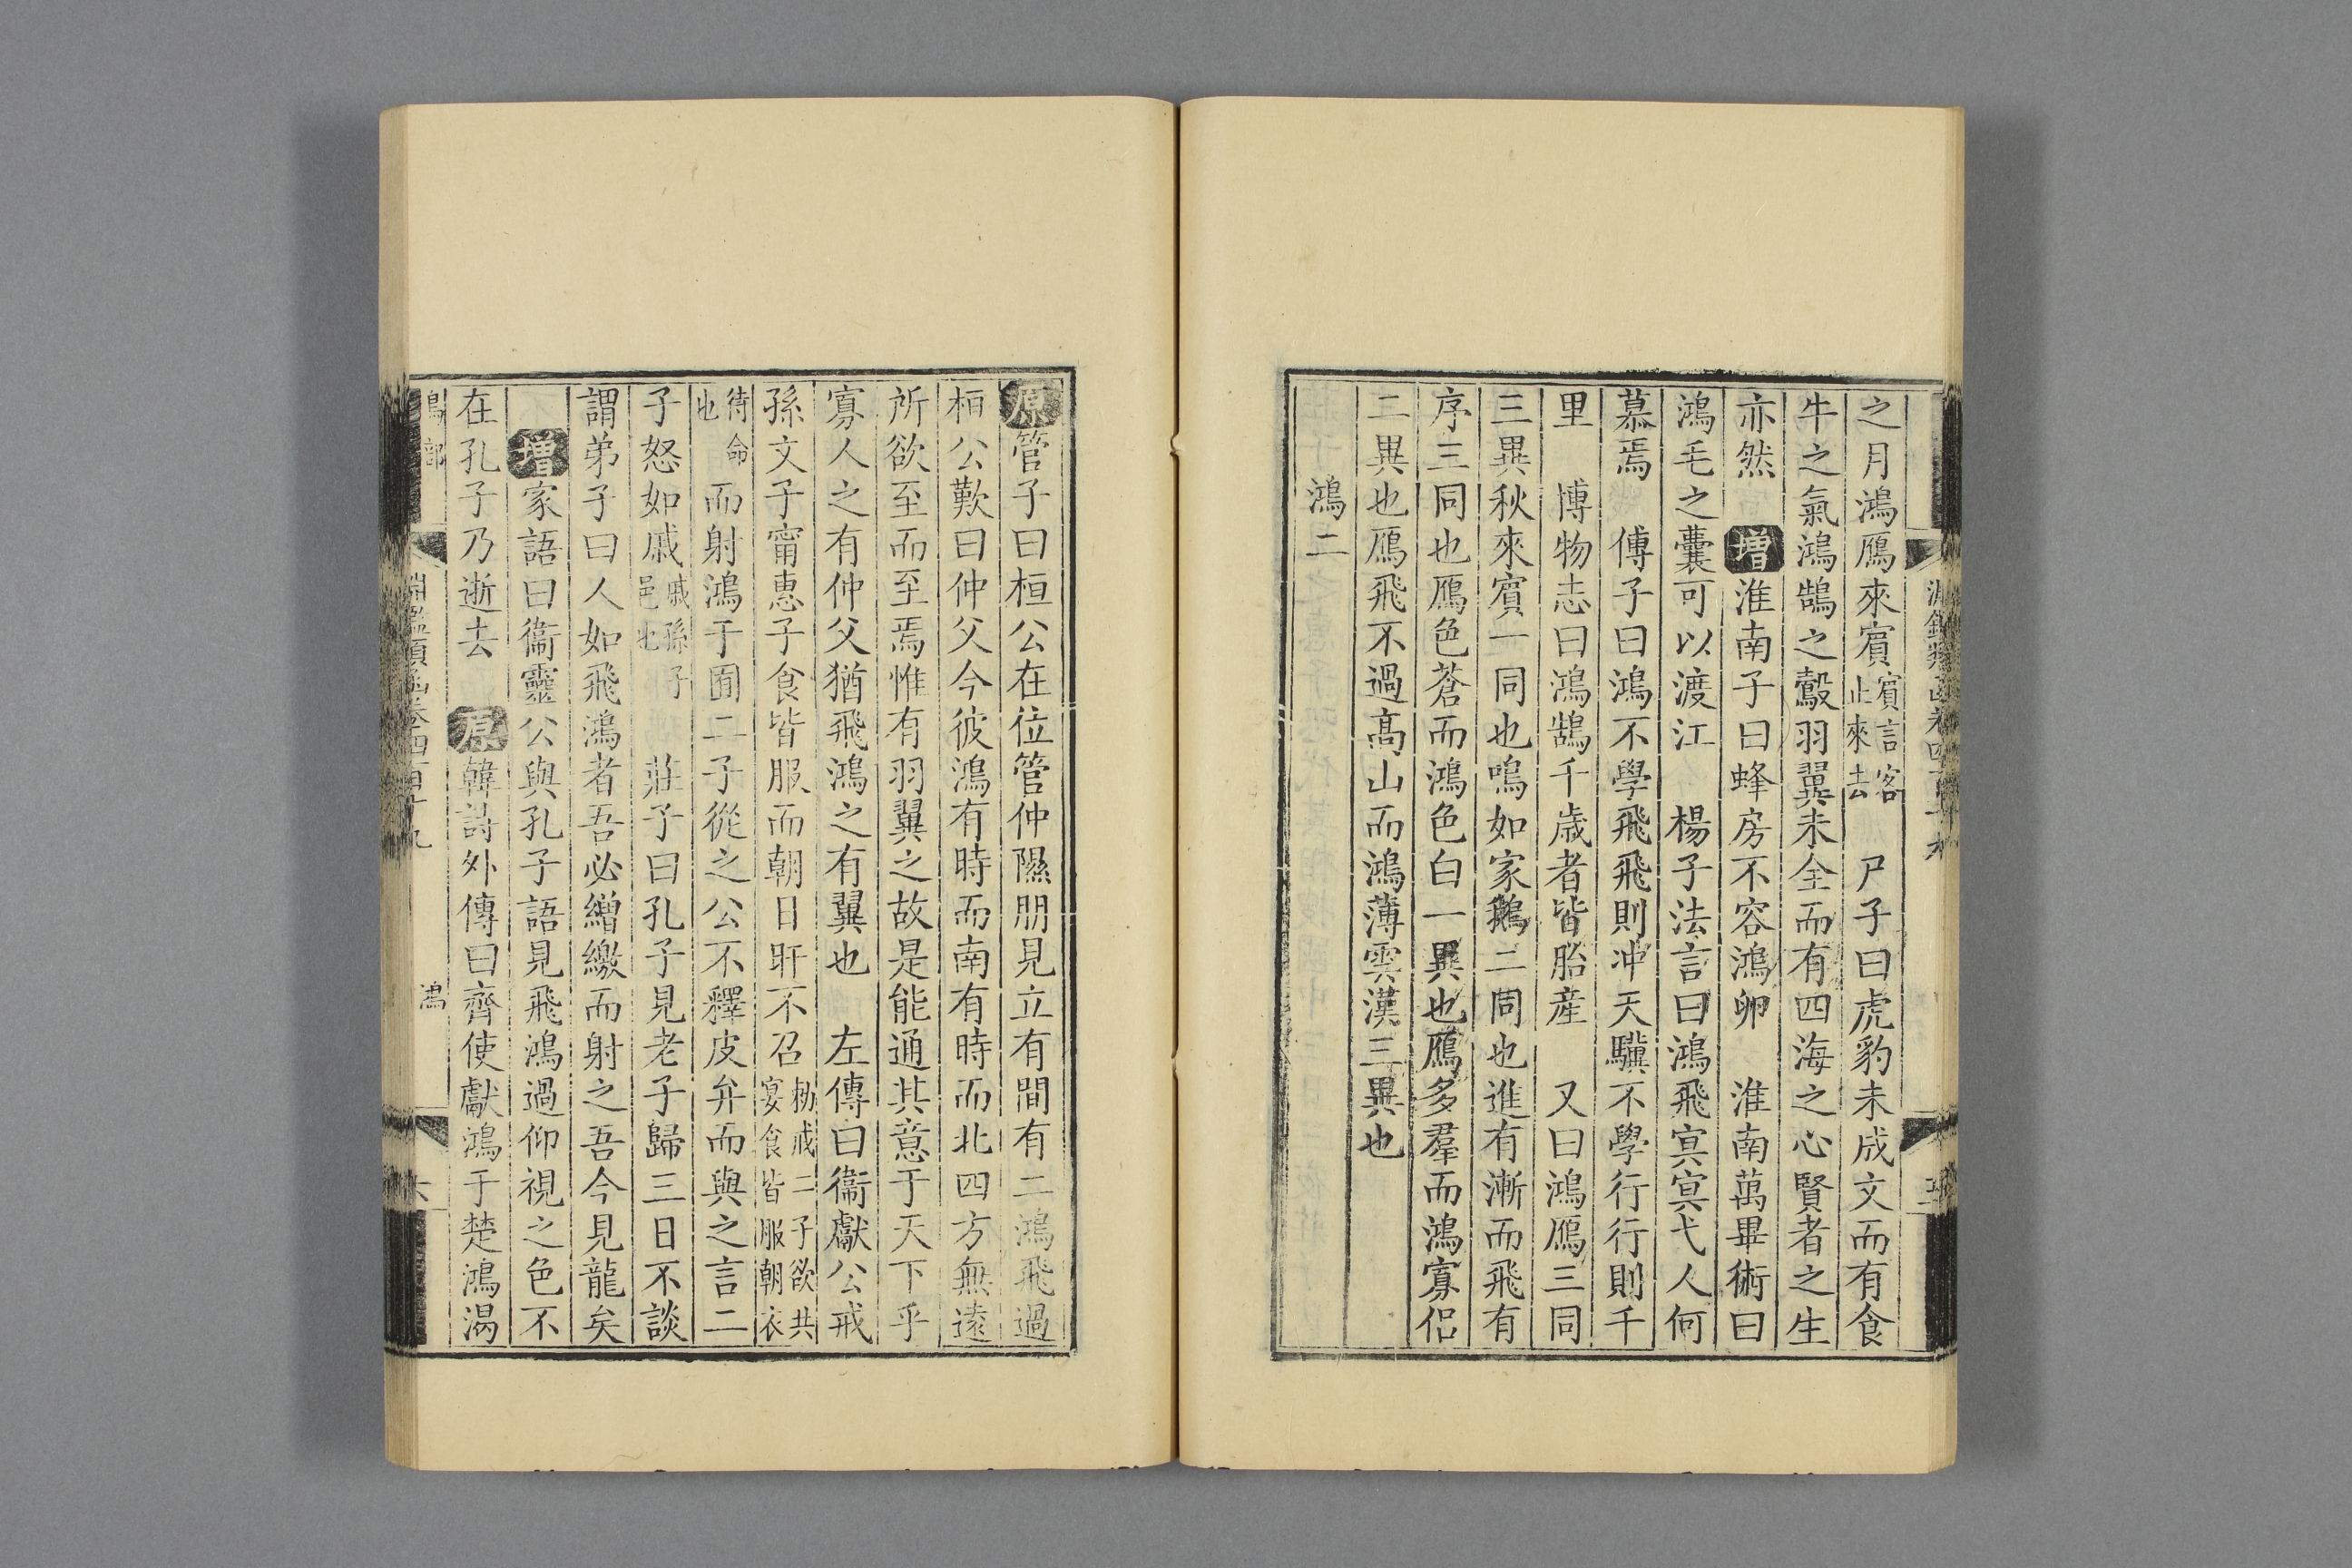 之月鴻鴈來賓賓言客止來去 尸子曰虎豹未成文而有食
牛之氣鴻鵠之鷇羽翼未全而有四海之心賢者之生
亦然 增淮南子曰蜂房不容鴻卵 淮南萬畢術曰
鴻毛之囊可以渡江 楊子法言曰鴻飛冥冥弋人何
慕焉 傅子曰鴻不學飛飛則冲天驥不學行行則千
里 博物志曰鴻鵠千歲者皆胎産 又曰鴻鴈三同
三異秋來賓一同也鳴如家鵝二同也進有漸而飛有
序三同也鴈色蒼而鴻色白一異也鴈多羣而鴻寡侣
二異也鴈飛不過高山而鴻薄雲漢三異也
鴻二
原管子曰桓公在位管仲隰朋見立有間有二鴻飛過
桓公歎曰仲父今彼鴻有時而南有時而北四方無遠
所欲至而至焉惟有羽翼之故是能通其意于天下乎
寡人之有仲父猶飛鴻之有翼也 左傳曰衞獻公戒
孫文子甯惠子食皆服而朝日旰不召勑戒二子欲共宴食皆服朝衣
待命也 而射鴻于囿二子從之公不釋皮弁而與之言二
子怒如戚戚孫子邑也 莊子曰孔子見老子歸三日不談
謂弟子曰人如飛鴻者吾必繒繳而射之吾今見龍矣
增家語曰衞靈公與孔子語見飛鴻過仰視之色不
在孔子乃逝去 原韓詩外傳曰齊使獻鴻于楚鴻渴
鳥部 淵鑑類函卷四百十九 鴻 六